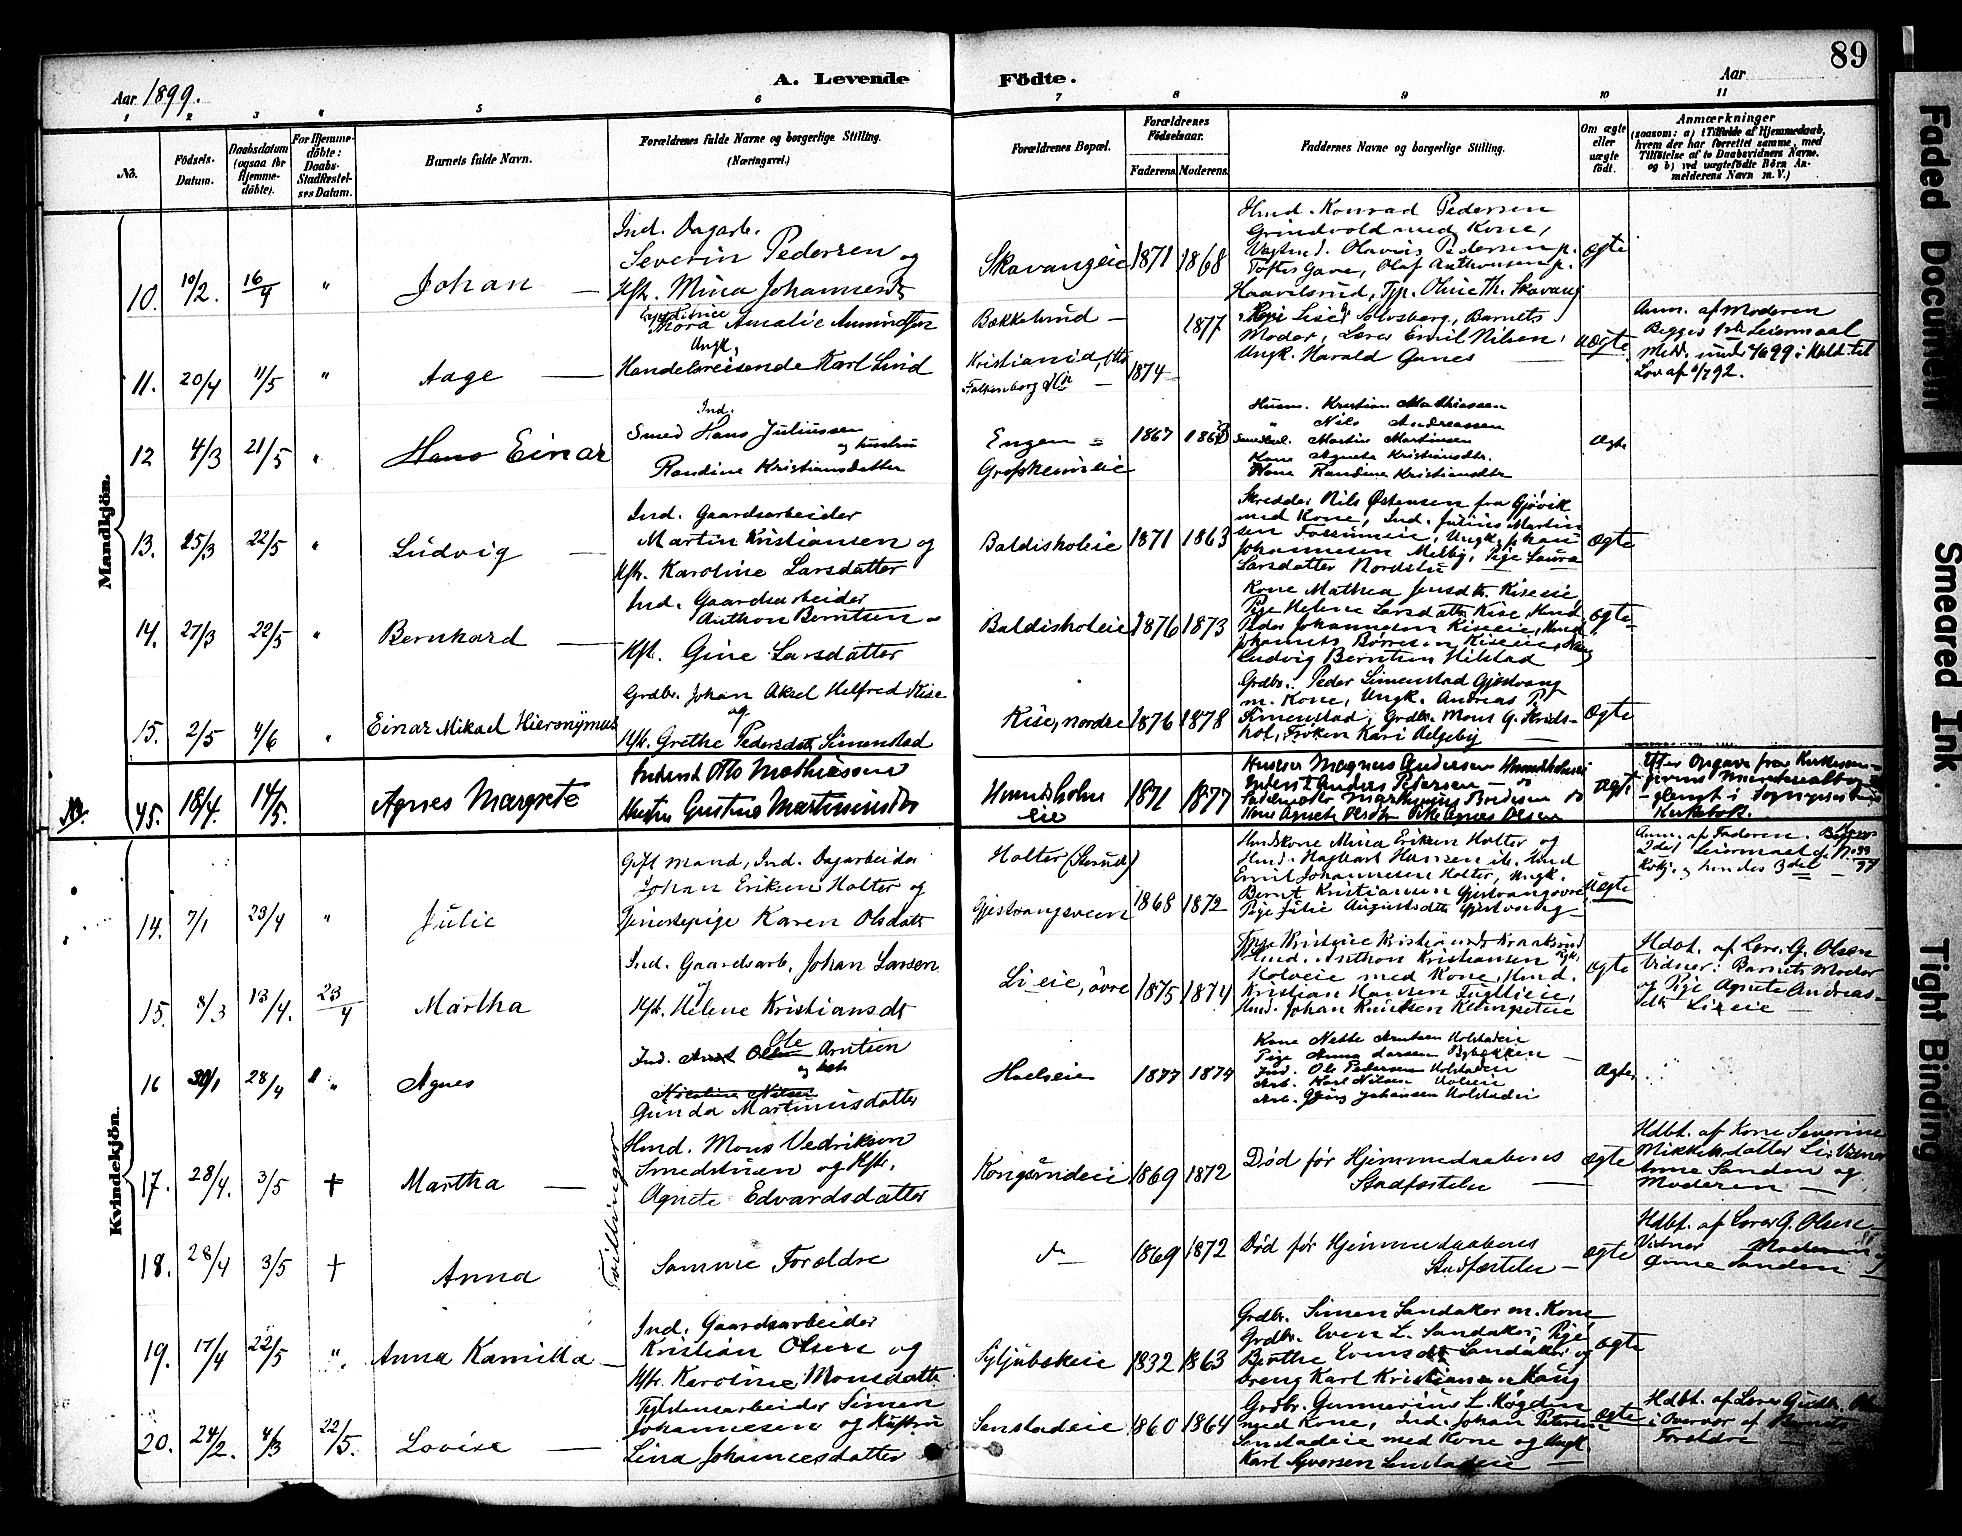 89
A. Levende Födte.
Aar 1899.
Aar
1 2 3 4 5 6 7 8 9 10 11
No.
Födsels-Datum.
Daabsdatum (ogsaa for Hjemmedöbte).
For Hjemmedöbte: Daabs-Stadfæstelses Datum.
Barnets fulde Navn.
Forældrenes fulde Navne og borgerlige Stilling. (Næringsvei.)
Forældrenes Bopæl.
Forældrenes Födselsaar.
Faderens. Moderens.
Faddernes Navne og borgerlige Stilling.
Om ægte eller uægte født.
Anmærkninger (saasom: a) i Tilfælde af Hjemmedaab, hvem der har forrettet samme, med Tilföielse af to Daabsvidners Navne, og b) ved uægtefödte Börn Anmelderens Navn m. V.)
Mandkjön.
10. 10/2. 16/4 " Johan —
Ind. Dagarb.
Severin Pedersen og
Hst. Mina Johannesdt
Skavangeie 1871 1868
Hmd. Konrad Pedersen
Grindvold med Kone,
Olaf Anthonsen p.
Haavelsrud,
ægte
11. 20/4 11/5 " Aage —
Thora Amalie Amundsen
Ungk.
Handelsreisende Karl Lind
Bækkelund — 1877
Kristiania,
Falkenborg 1874
Solvsberg, Barnets
Moder, Lærer Emil Nilsen,
Ungk. Harald Ganes —
uægte
Anm. af Moderen
Begges 1ste Leiermaal
Lov af 6/7 92.
12 4/3 21/5 " Hans Einar
Ind.
Smed Hans Juliussen
og hustru
Randine Kristiansdatter
Engen = 1867
Husm. Kristian Mathiassen
" Nils Andreassen
Martin Martinsen
Kone Agnete Kristiansdtr.
Kone Randine Kristiansdtr
Ægte
13. 25/3 22/5 " Ludvig —
Ind. Gaardsarbeider
Martin Kristiansen og
Hst. Karoline Larsdatter
Baldisholeie 1871 1863
Skredder Nils Østensen fra Gjøvik
med Kone, Ind. Julius Martin
sen Ungk. Johan
Johannesen Melby, Pige Laura
Larsdatter Nordstu
ægte
14. 27/3 22/5 " Bernhard —
Ind. Gaardsarbeider
Anthon Berntsen
Hst. Gine Larsdatter
Baldisholeie 1876 1873
Kone Mathea Jensdtr. Kiseeie,
Pige Helene Larsdatter Kise, Hmd.
Peder Johannesen Kiseeie, Hmd.
Johannes Børresen Kiseeie,
Ludvig Berntsen Hilstad
ægte
15. 2/5 4/6 " Einar Mikael Hieronymus
Grdbr. Johan Aksel Helfred Kise
og
Hst. Grethe Pedersdt. Simenstad
Kise, nordre 1876 1878
Grdbr. Peder Simenstad Gjestvang
m. Kone, Ungk. Andreas P.
Simenstad, Grdbr. Mons G. Krids-
hol, Frøken Kari Helgeby
ægte
45. 18/4. 14/5. Agnes Margrete
Inderst Otto Mathiassen
Hustru Gustine Martinusdtr
Hmundsholm
eie
1871 1877
Magnus Andersen
Inderst Anders Petersen — do
Kone Agnete Olsdtr Pike Agnes Olsen
ægte
Efter Opgave fra Kirkesan-
Kirkebok.
Kvindekjön.
14. 7/1 23/4 " Julie
Gift mand, Ind. Dagarbeider
Johan Eriksen Holter og
Tjenestepige Karen Olsdatt
Holter
Gjestvangsveen 1868 1872
Hmdskone Mina Eriksen Holter og
Hmd. Hagbart Hansen ib. Hmd
Emil Johannesen Holter, Ungk.
Bernt Kristiansen Gjestvangsvee
Pige Julie Augustsdtr Gjestvang —
Uægte
Anm. af Faderen.
2det Leiermaal
og hendes 3die
15. 8/3 13/4. 23/4 Martha
Ind. Gaardsarb. Johan Larsen
og
Hst. Helene Kristiansdt
Lieie, øvre 1875 1874
Hmd. Anthon Kristiansen
Kolveie med Kone, Hmd.
Kristian Hansen
Hmd. Johan Knutsen
ægte
Hdbt. af Lærer G. Olsen
Vidner: Barnets Moder
og Pige Agnete Andreas-
dtr Lieie —
16 30/1 28/4 " Agnes
Ind. Ole Arntsen
og hst.
Gunda Martinusdatter
Hoelseie 1877 1874
Kone Nette Arntsen Holstadeie
Pige Anna Larsen Bybakken —
Ind. Ole Pedersen Holstadeie
Arb. Karl Nilsen Holseie
Arb. Johansen Holstadeie
Ægte
Tvillinger
17. 28/4. 3/5 + Martha —
Hmd. Mons Vedriksen
Smedstuen og Hst.
Agnete Edvardsdatter
Kongsrudeie 1869 1872
Død før Hjemmedaabens
Stadfæstelse —
ægte
Hdbt. af Kone Severine
Mikkelsdatter Li. Vidner
Anne Sanden og
Moderen —
18. 28/4 3/5 + Anna
Samme Forældre
1869 1872
Død før Hjemmedaabens
Stadfæstelse —
ægte
Hdbt. af Lærer G. Olsen —
Vidner Moderen og
Anne Sanden —
19. 17/4 22/5 " Anna Kamilla —
Ind. Gaardsarbeider
Kristian Olsen og
Hst. Karoline Monsdatte
Syljubskeie 1832 1863
Grdbr. Simen Sandaker m. Kone
Grdbr. Even L. Sandaker, Pige
Berthe Evensdt Sandaker og
Dreng Karl Kristiansen Haug
ægte
20. 24/2. 4/3 22/5. Lovise —
Teglstensarbeider Simen
Johannesen og Hustru
Lina Johannesdatter
Senstadeie 1860 1864
Grdbr. Gunnerius L. Høgden
med Kone, Ind. Johan Petersen
Senstadeie med Kone og Ungk.
Karl Syversen Senstadeie —
ægte
Hdbt. af Lærer
i Overvær af
Forældre —
Faded Document
Smeared Ink.
Tight Binding